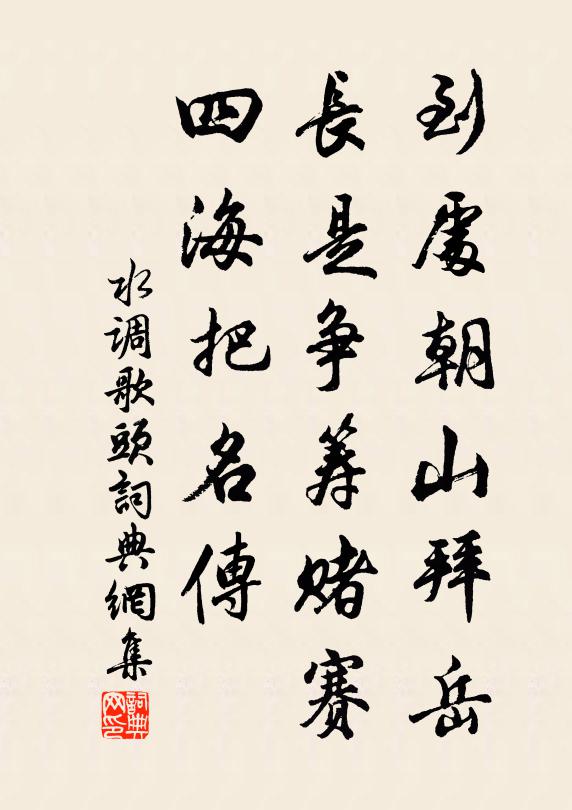 到處朝山拜岳
長是爭籌賭賽
四海把名傳
水調歌頭詞典網集
詞典網印